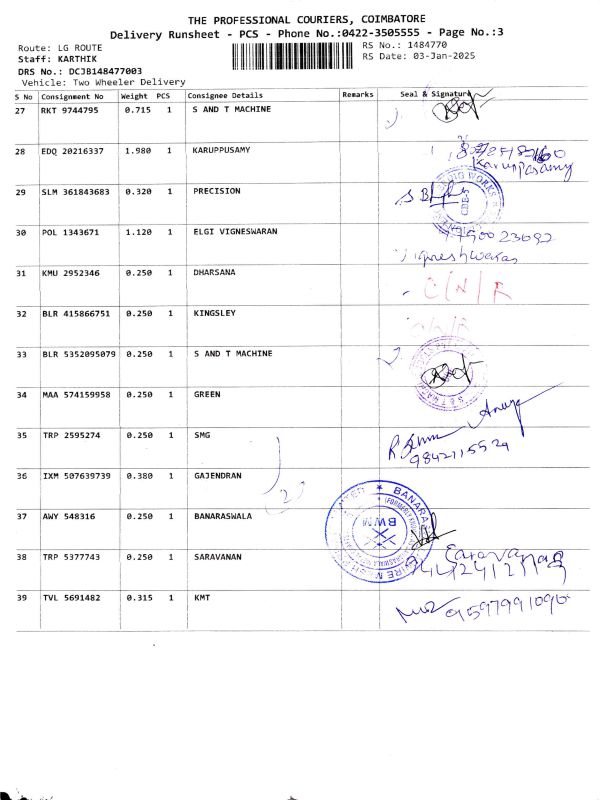 THE PROFESSIONAL COURIERS, COIMBATORE
Delivery Runsheet - PCS - Phone No.:0422-3505555 - Page No.:3
Route: LG ROUTE
RS No.: 1484770
Staff: KARTHIK
RS Date: 03-Jan-2025
DRS No.: DCJB148477003
Vehicle: Two Wheeler Delivery
S No Consignment No Weight PCS Consignee Details Remarks Seal & Signature
27 RKT 9744795 0.715 1 S AND T MACHINE
28 EDQ 20216337 1.980 1 KARUPPUSAMY
Karuppasamy
29 SLM 361843683 0.320 1 PRECISION
30 POL 1343671 1.120 1 ELGI VIGNESWARAN
31 KMU 2952346 0.250 1 DHARSANA
32 BLR 415866751 0.250 1 KINGSLEY
33 BLR 5352095079 0.250 1 S AND T MACHINE
34 MAA 574159958 0.250 1 GREEN
35 TRP 2595274 0.250 1 SMG
9842115529
36 IXM 507639739 0.380 1 GAJENDRAN
37 AWY 548316 0.250 1 BANARASWALA
BWM
38 TRP 5377743 0.250 1 SARAVANAN
Saravanan
39 TVL 5691482 0.315 1 KMT
9597991090